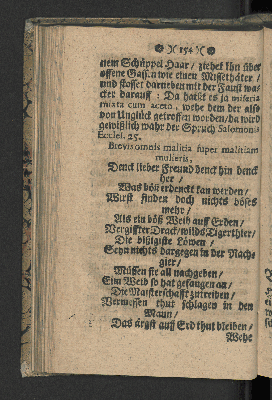 154
nem Schüppel Haar / ziehet ihn über
offene Gassen wie einen Missethäter /
und stosset darneben mit der Faust wa-
cker darauff: Da haißt es ja miseria
mixta cum aceto, wehe dem der also
von Unglück getroffen worden / da wird
gewißlich wahr der Spruch Salomonis
Eccles. 25.
Brevis omnis malitia super malitiam
mulieris.
Denck lieber Freund denck hin denck
her /
Was böß erdenckt kan werden /
Wirst finden doch nichts böses
mehr /
Als ein böß Weib auff Erden /
Vergiffter Drack / wilds Tigerthier /
Die bißigiste Löwen /
Seyn nichts dargegen in der Rach-
gier /
Müssen jr all nachgeben /
Eim Weib so hat gefangen an /
Die Maisterschafft zutreiben /
Vermessen thut schlagen in den
Mann /
Das ärgst auff Erd thut bleiben /
Wehe